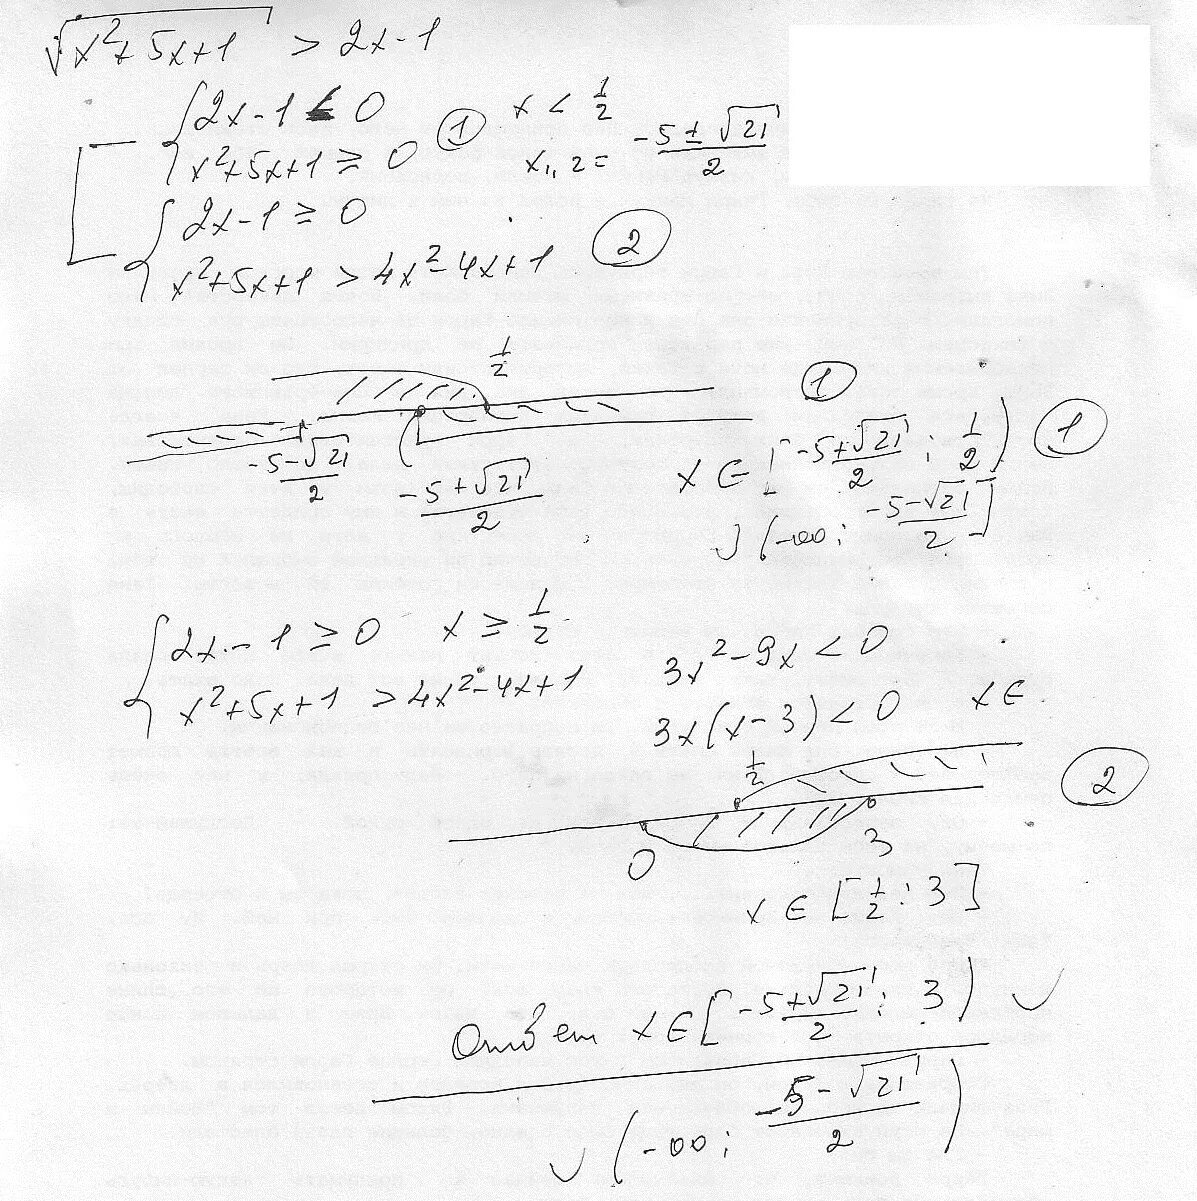 √(x²+5x+1) > 2x-1
{ 2x-1 < 0 ① x < 1/2
x²+5x+1 ≥ 0 x₁,₂ = (-5±√21)/2
{ 2x-1 ≥ 0
x²+5x+1 > 4x²-4x+1 ②
1/2 ①
(-5-√21)/2 (-5+√21)/2
x ∈ [(-5+√21)/2; 1/2) ①
∪ (-∞; (-5-√21)/2]
{ 2x-1 ≥ 0 x ≥ 1/2
x²+5x+1 > 4x²-4x+1
3x²-9x < 0
3x(x-3) < 0 x ∈
1/2 ②
0 3
x ∈ [1/2; 3]
Ответ x ∈ [(-5+√21)/2; 3) ∪
∪ (-∞; (-5-√21)/2)